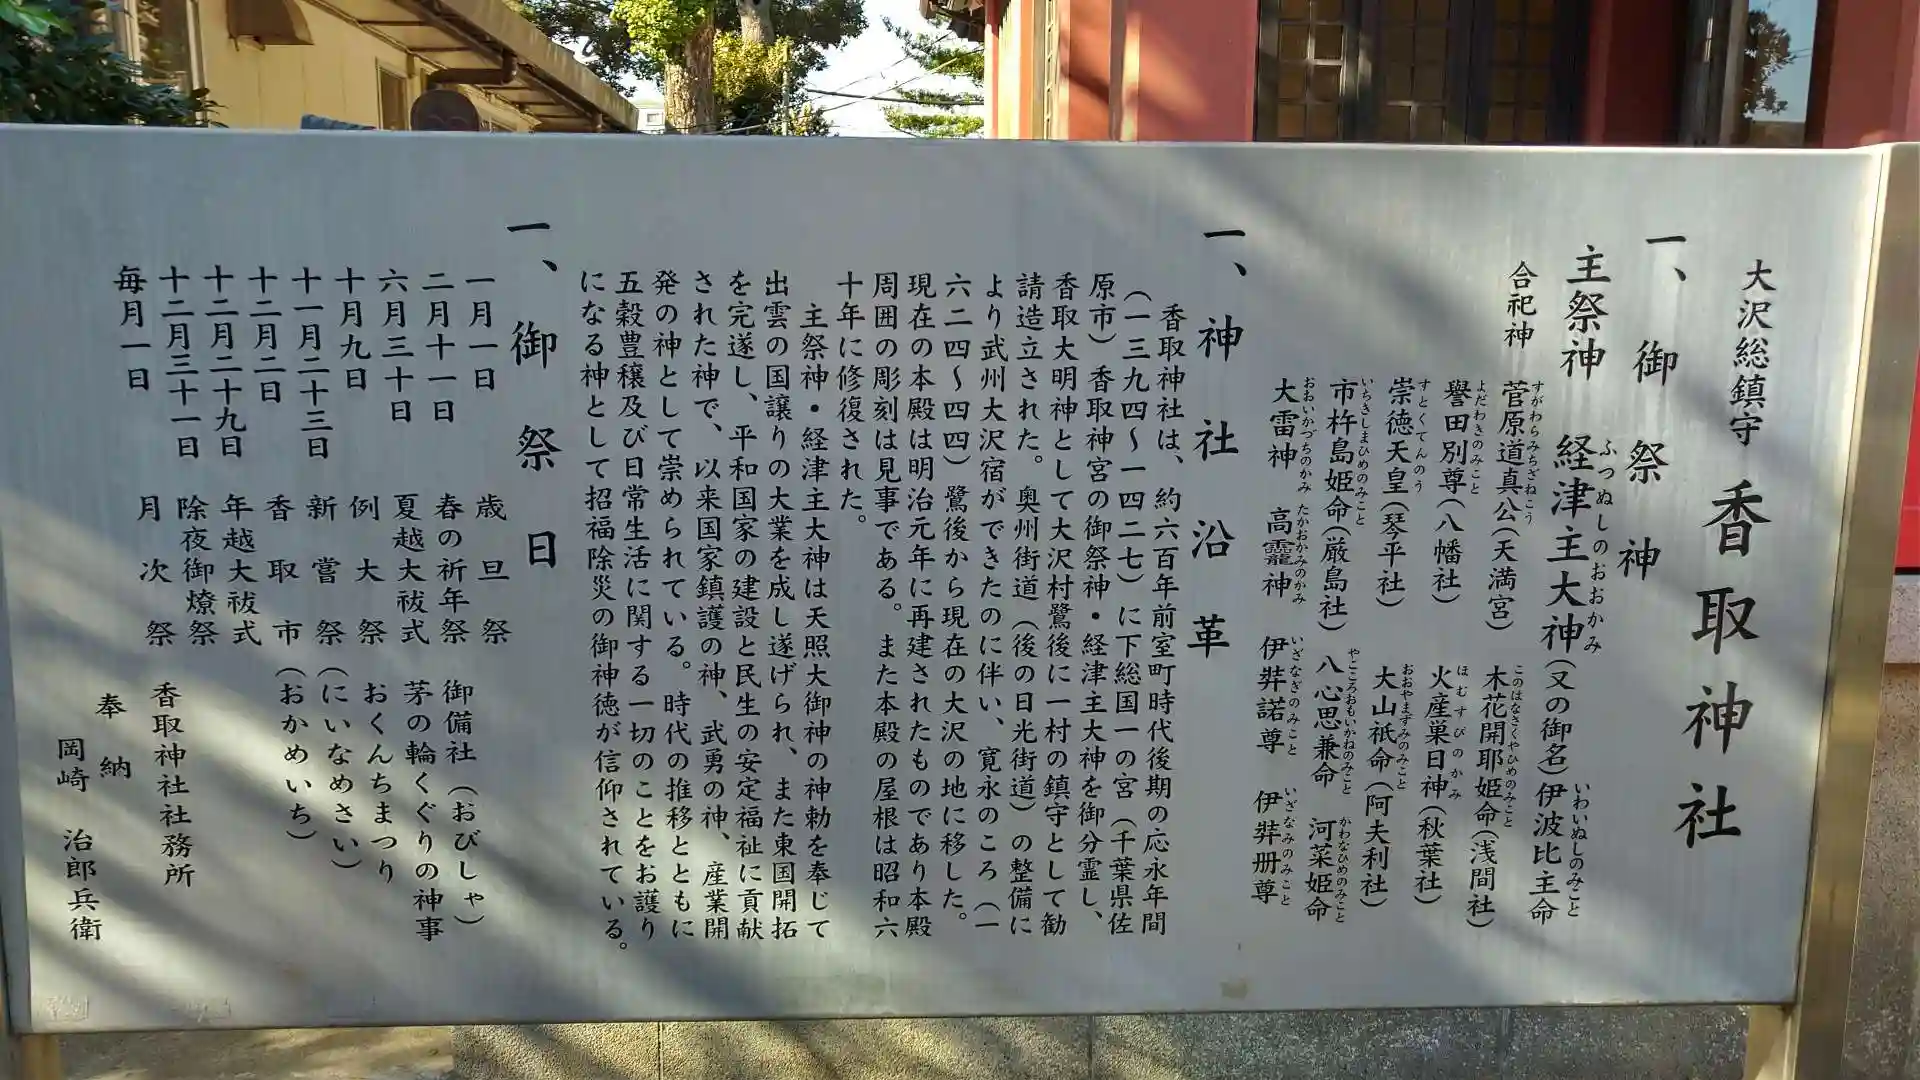 大沢総鎮守 香取神社
一、御祭神
主祭神 経津主大神(又の御名)伊波比主命
ふつぬしのおおかみ いわいぬしのみこと
合祀神
菅原道真公(天満宮) 木花開耶姫命(浅間社)
すがわらみちざねこう このはなさくやひめのみこと
譽田別尊(八幡社) 火産巣日神(秋葉社)
よだわきのみこと ほむすびのかみ
崇徳天皇(琴平社) 大山祇命(阿夫利社)
すとくてんのう おおやまずみのみこと
市杵島姫命(厳島社) 八心思兼命 河菜姫命
いちきしまひめのみこと やごころおもいかねのみこと かわなひめのみこと
大雷神 高龗神 伊弉諾尊 伊弉册尊
おおいかづちのかみ たかおかみのかみ いざなぎのみこと いざなみのみこと
一、神社沿革
香取神社は、約六百年前室町時代後期の応永年間
(一三九四〜一四二七)に下総国一の宮(千葉県佐
原市)香取神宮の御祭神・経津主大神を御分霊し、
香取大明神として大沢村鷺後に一村の鎮守として勧
請造立された。奥州街道(後の日光街道)の整備に
より武州大沢宿ができたのに伴い、寛永のころ(一
六二四〜四四)鷺後から現在の大沢の地に移した。
現在の本殿は明治元年に再建されたものであり本殿
周囲の彫刻は見事である。また本殿の屋根は昭和六
十年に修復された。
主祭神・経津主大神は天照大御神の神勅を奉じて
出雲の国譲りの大業を成し遂げられ、また東国開拓
を完遂し、平和国家の建設と民生の安定福祉に貢献
された神で、以来国家鎮護の神、武勇の神、産業開
発の神として崇められている。時代の推移とともに
五穀豊穣及び日常生活に関する一切のことをお護り
になる神として招福除災の御神徳が信仰されている。
一、御祭日
一月一日 歳旦祭
二月十一日 春の祈年祭 御備社(おびしゃ)
六月三十日 夏越大祓式 茅の輪くぐりの神事
十月九日 例大祭 おくんちまつり
十一月二十三日 新嘗祭(にいなめさい)
十二月二日 香取市(おかめいち)
十二月二十九日 年越大祓式
十二月三十一日 除夜御燎祭
毎月一日 月次祭
香取神社社務所
奉納
岡崎 治郎兵衛